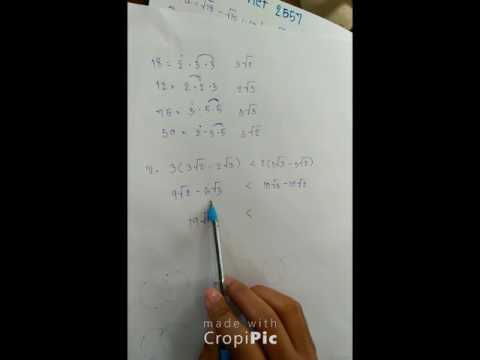 net 2557
18 = 2 · 3 · 3 3√2
12 = 2 · 2 · 3 2√3
75 = 3 · 5 · 5 5√3
50 = 2 · 5 · 5 5√2
3(3√2 - 2√3) < 2(5√3 - 5√2)
9√2 - 6√3 < 10√3 - 10√2
19√2 <
made with
CropiPic